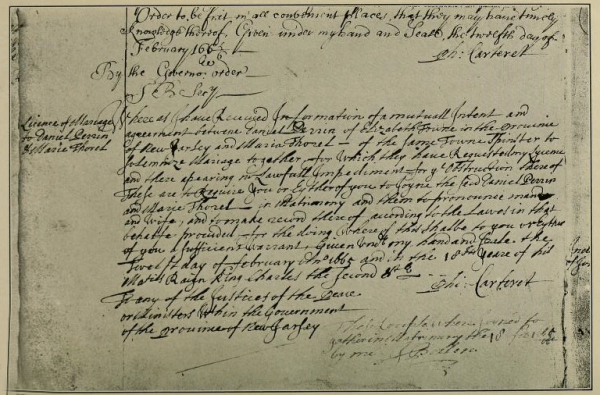 Order to be sent in all convenient places, that they may have timely
knowledge thereof, Given under my hand and Seale, the twelfth day of
February 166
Ph: Carteret
By the Governor order
Secry
Licence of Mariage
to Daniel Perrin
& Marie Thorel
Whereas I have Received Information of a mutuall Intent and
agreement between Daniel Perrin of Elizabeth Towne in the province
of New Jarsey and Maria Thorel of the same Towne Spinster to
solemnize Mariage together, for which they have Requested my Lycence
and there appearing no Lawfull Impediment for ye obstruction thereof
These are to Require you or Eyther of you to Joyne the said Daniel Perrin
and Marie Thorel in Matrimony and them to pronounce man
and wife, and to make record thereof, according to the Lawes in that
behalfe provided, for the doing whereof this shall be to you or Eyther
of you a sufficient warrant, Given under my hand and seale the
Twelft day of february Ano 1665 and in the 18th Yeare of his
Maties Raign King Charles the Second
Ph: Carterett
To any of the Justices of the Peace
or Ministers within the Government
of the province of New Jarsey
These couple where joyned to
gether in Matrimony the 18
by me